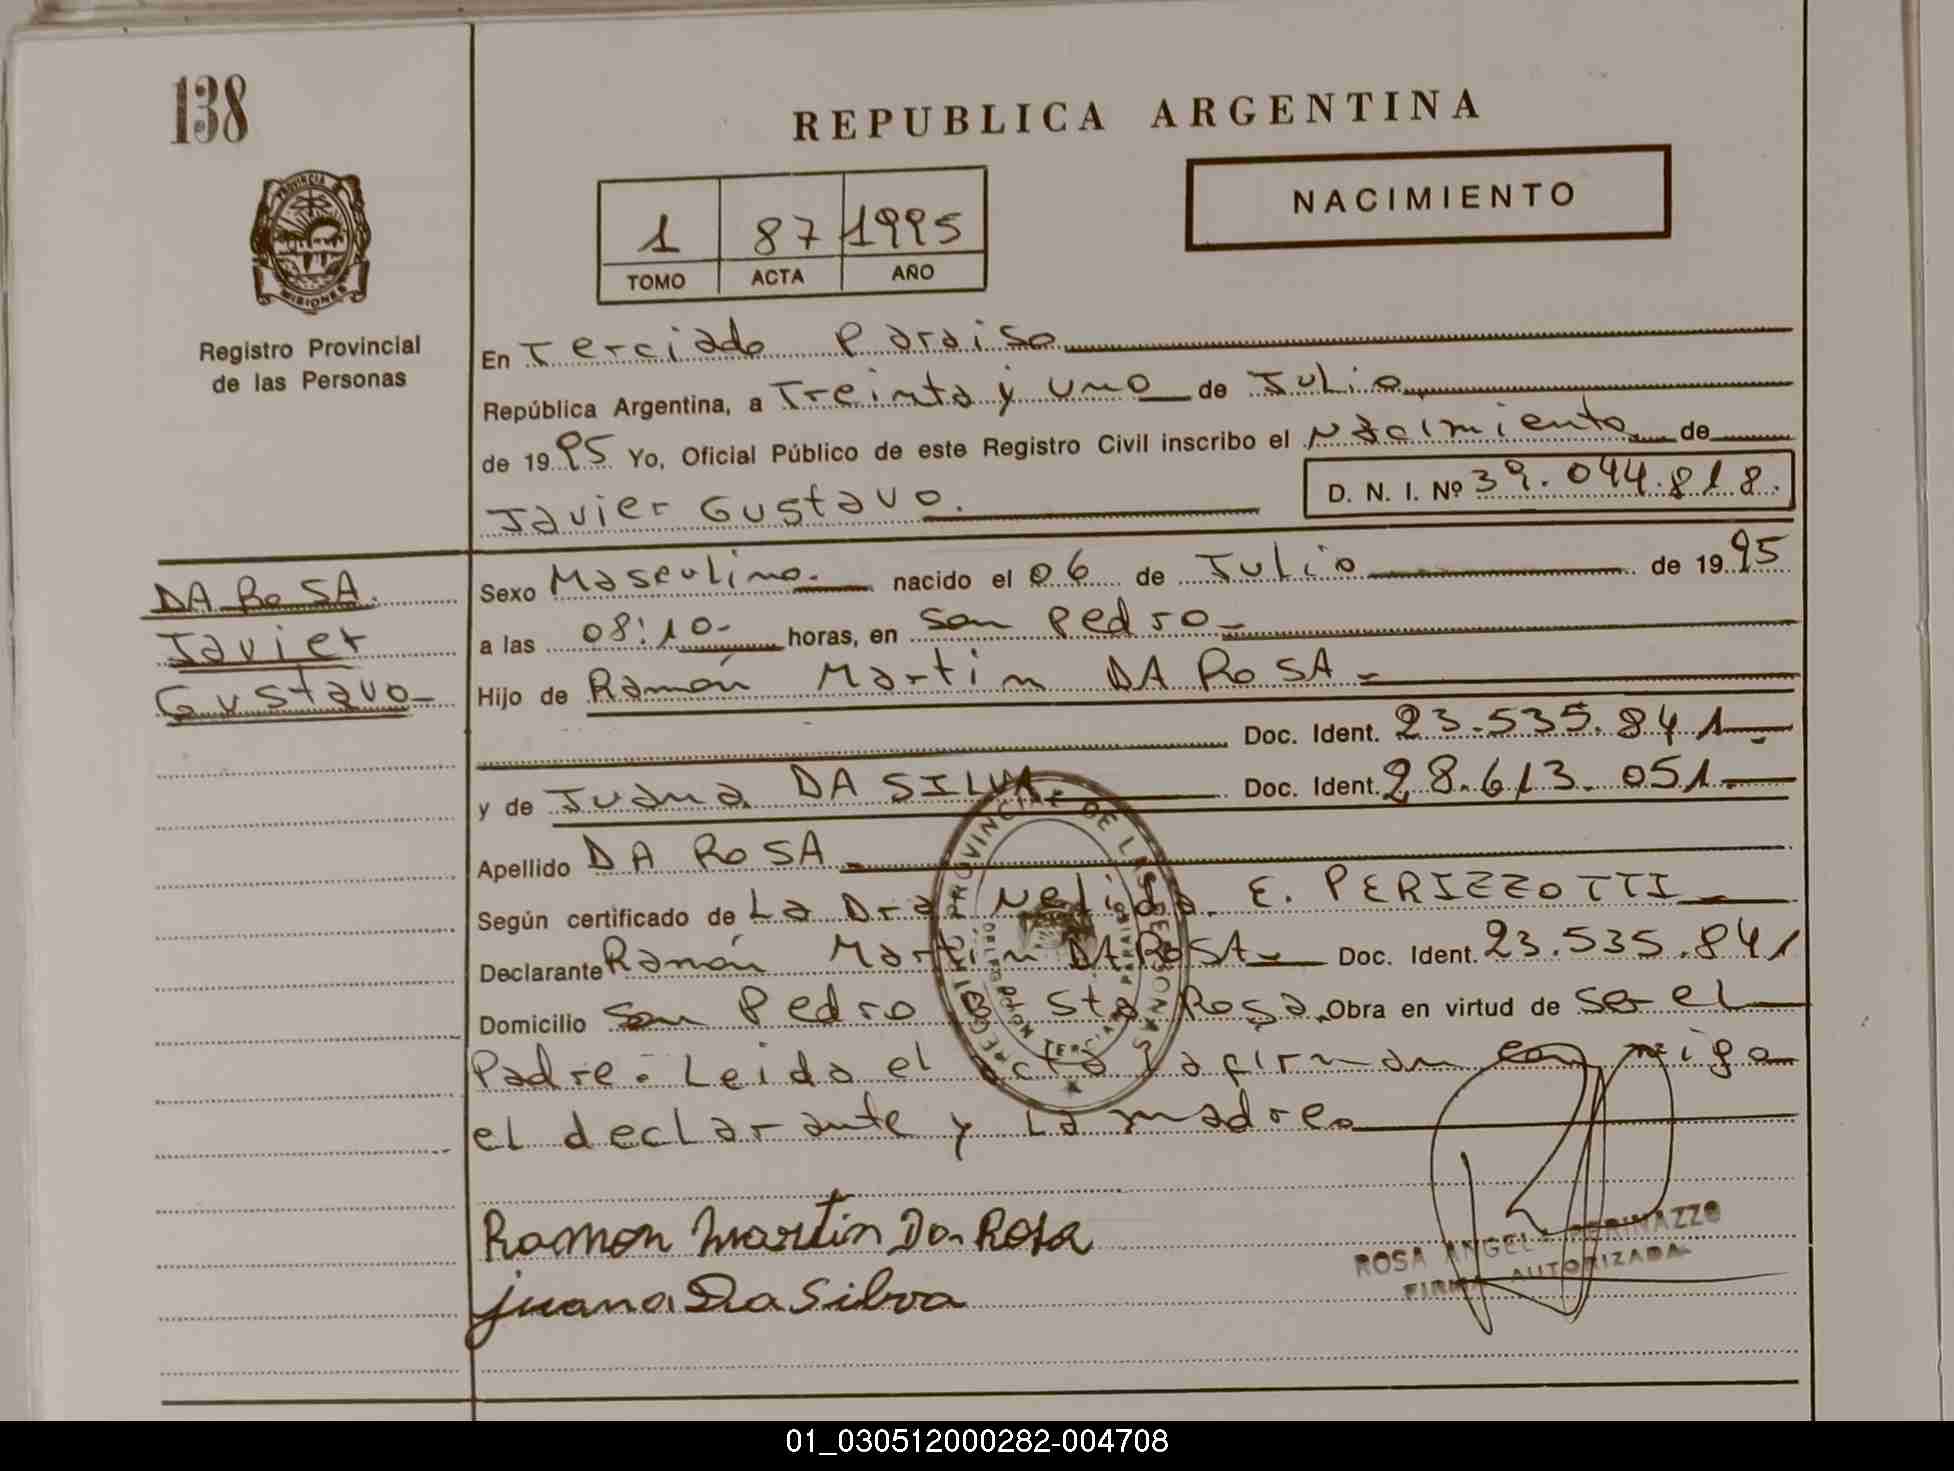 138
REPUBLICA ARGENTINA
NACIMIENTO
1 87 1995
TOMO ACTA AÑO
PROVINCIA
MISIONES
Registro Provincial
de las Personas
En Terciado Paraiso
República Argentina, a Treinta y uno de Julio
de 1995 Yo, Oficial Público de este Registro Civil inscribo el Nacimiento de
Javier Gustavo.
D. N. I. Nº 39.044.818.
DA ROSA.
Javier
Gustavo
Sexo Masculino. nacido el 06 de Julio de 1995
a las 08:10- horas, en San Pedro
Hijo de Ramón Martin DA ROSA
Doc. Ident. 23.535.841
y de Juana DA SILVA Doc. Ident. 28.613.051
Apellido DA ROSA
Según certificado de La Dra Nelida E. PERIZZOTTI
Declarante Ramón Martin DA ROSA Doc. Ident. 23.535.841
Domicilio San Pedro Bº Sta Rosa. Obra en virtud de ser el
Padre. Leida el acta la firman conmigo
el declarante y La madre
Ramon Martin Da Rosa
Juana Da Silva
ROSA ANGELA PERINAZZO
FIRMA AUTORIZADA
01_030512000282-004708